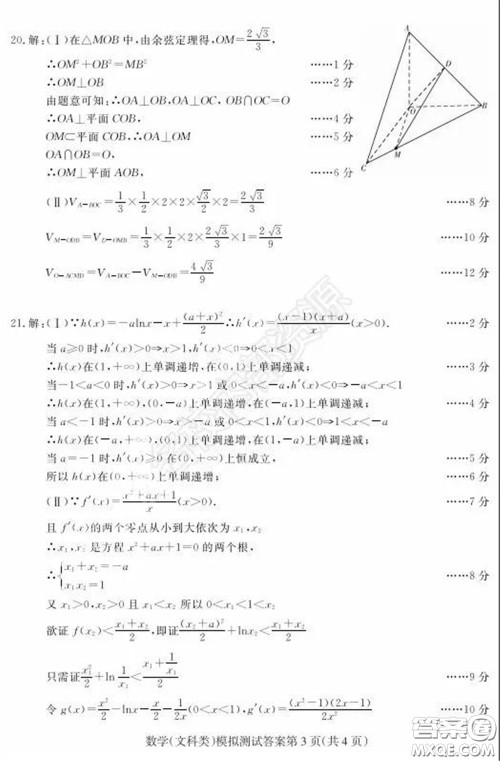 20.解:(Ⅰ)在△MOB中,由余弦定理得,OM=2√3/3,
∴OM²+OB²=MB² ……1分
∴OM⊥OB ……2分
由题意可知:∴OA⊥OB,OA⊥OC, OB∩OC=O
∴OA⊥平面COB, ……4分
OM⊂平面COB,∴OA⊥OM ……5分
OA∩OB=O,
∴OM⊥平面AOB, ……6分
A
D
O
B
M
C
(Ⅱ)V_{A-BOC}=1/3×1/2×2×2×√3/2×2=2√3/3 ……8分
V_{M-ODB}=V_{D-OMB}=1/3×1/2×2×2√3/3×1=2√3/9 ……10分
V_{O-ACMD}=V_{A-BOC}-V_{M-ODB}=4√3/9 ……12分
21.解:(Ⅰ)∵h(x)=-alnx-x+(a+x)²/2 ∴h′(x)=(x-1)(x+a)/x (x>0). ……2分
当a≥0时,h′(x)>0⇒x>1,h′(x)<0⇒0<x<1
∴h(x)在(1,+∞)上单调递增,在(0,1)上单调递减; ……3分
当-1<a<0时,h′(x)>0⇒x>1或0<x<-a,h′(x)<0⇒-a<x<1
∴h(x)在(1,+∞),(0,-a)上单调递增,在(-a,1)上单调递减; ……4分
当a<-1时,h′(x)>0⇒x>-a或0<x<1,h′(x)<0⇒1<x<-a
∴h(x)在(-a,+∞),(0,1)上单调递增,在(1,-a)上单调递减;
当a=-1时,h′(x)≥0在(0,+∞)上恒成立, ……5分
所以h(x)在(0,+∞)上单调递增; ……6分
(Ⅱ)∵f′(x)=(x²+ax+1)/x (x>0). ……7分
且f′(x)的两个零点从小到大依次为x₁,x₂
∴x₁,x₂是方程x²+ax+1=0的两个根,
∴{x₁+x₂=-a
x₁x₂=1 ……8分
又x₁>0,x₂>0且x₁<x₂所以0<x₁<1<x₂
欲证f(x₂)<(x₁+x₂)/2,即证(x₂+a)²/2+lnx₂<(x₁+x₂)/2
只需证x₁²/2+ln 1/x₁<(x₁+1/x₁)/2 ……9分
令g(x)=x²/2-lnx-x/2-1/2x(0<x<1),g′(x)=(x²-1)(2x-1)/2x² ……10分
数学(文科类)模拟测试答案第3页(共4页)
答案圈
MXQE.COM